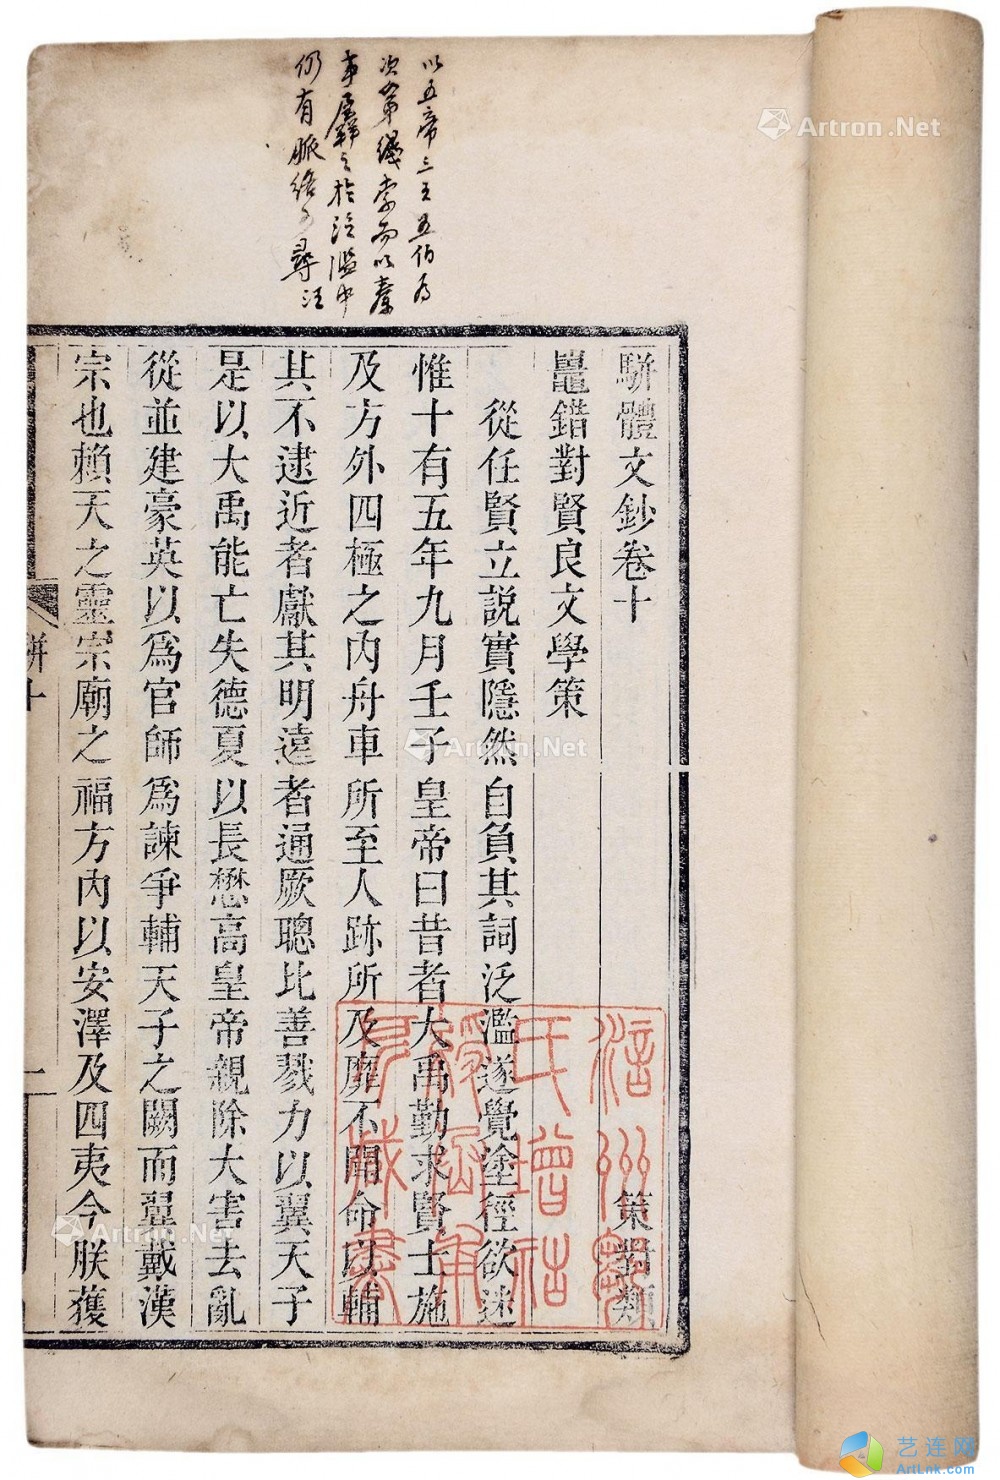 以五帝三王五伯為
次第織李而以秦
事羼之於泛濫中
仍有脈絡可尋汪
駢體文鈔卷十
策對類
鼂錯對賢良文學策
從任賢立説實隱然自負其詞泛濫遂覺塗徑欲迷
惟十有五年九月壬子皇帝曰昔者大禹勤求賢士施
及方外四極之内舟車所至人跡所及靡不聞命以輔
其不逮近者獻其明遠者通厥聰比善戮力以翼天子
是以大禹能亡失德夏以長懋高皇帝親除大害去亂
從並建豪英以為官師為諫爭輔天子之闕而翼戴漢
宗也賴天之靈宗廟之福方内以安澤及四夷今朕獲
駢十
一
涪州
氏曾祜
所藏書
Artron.Net
Artron.Net
Artron.Net
艺连网
ArtLnk.com